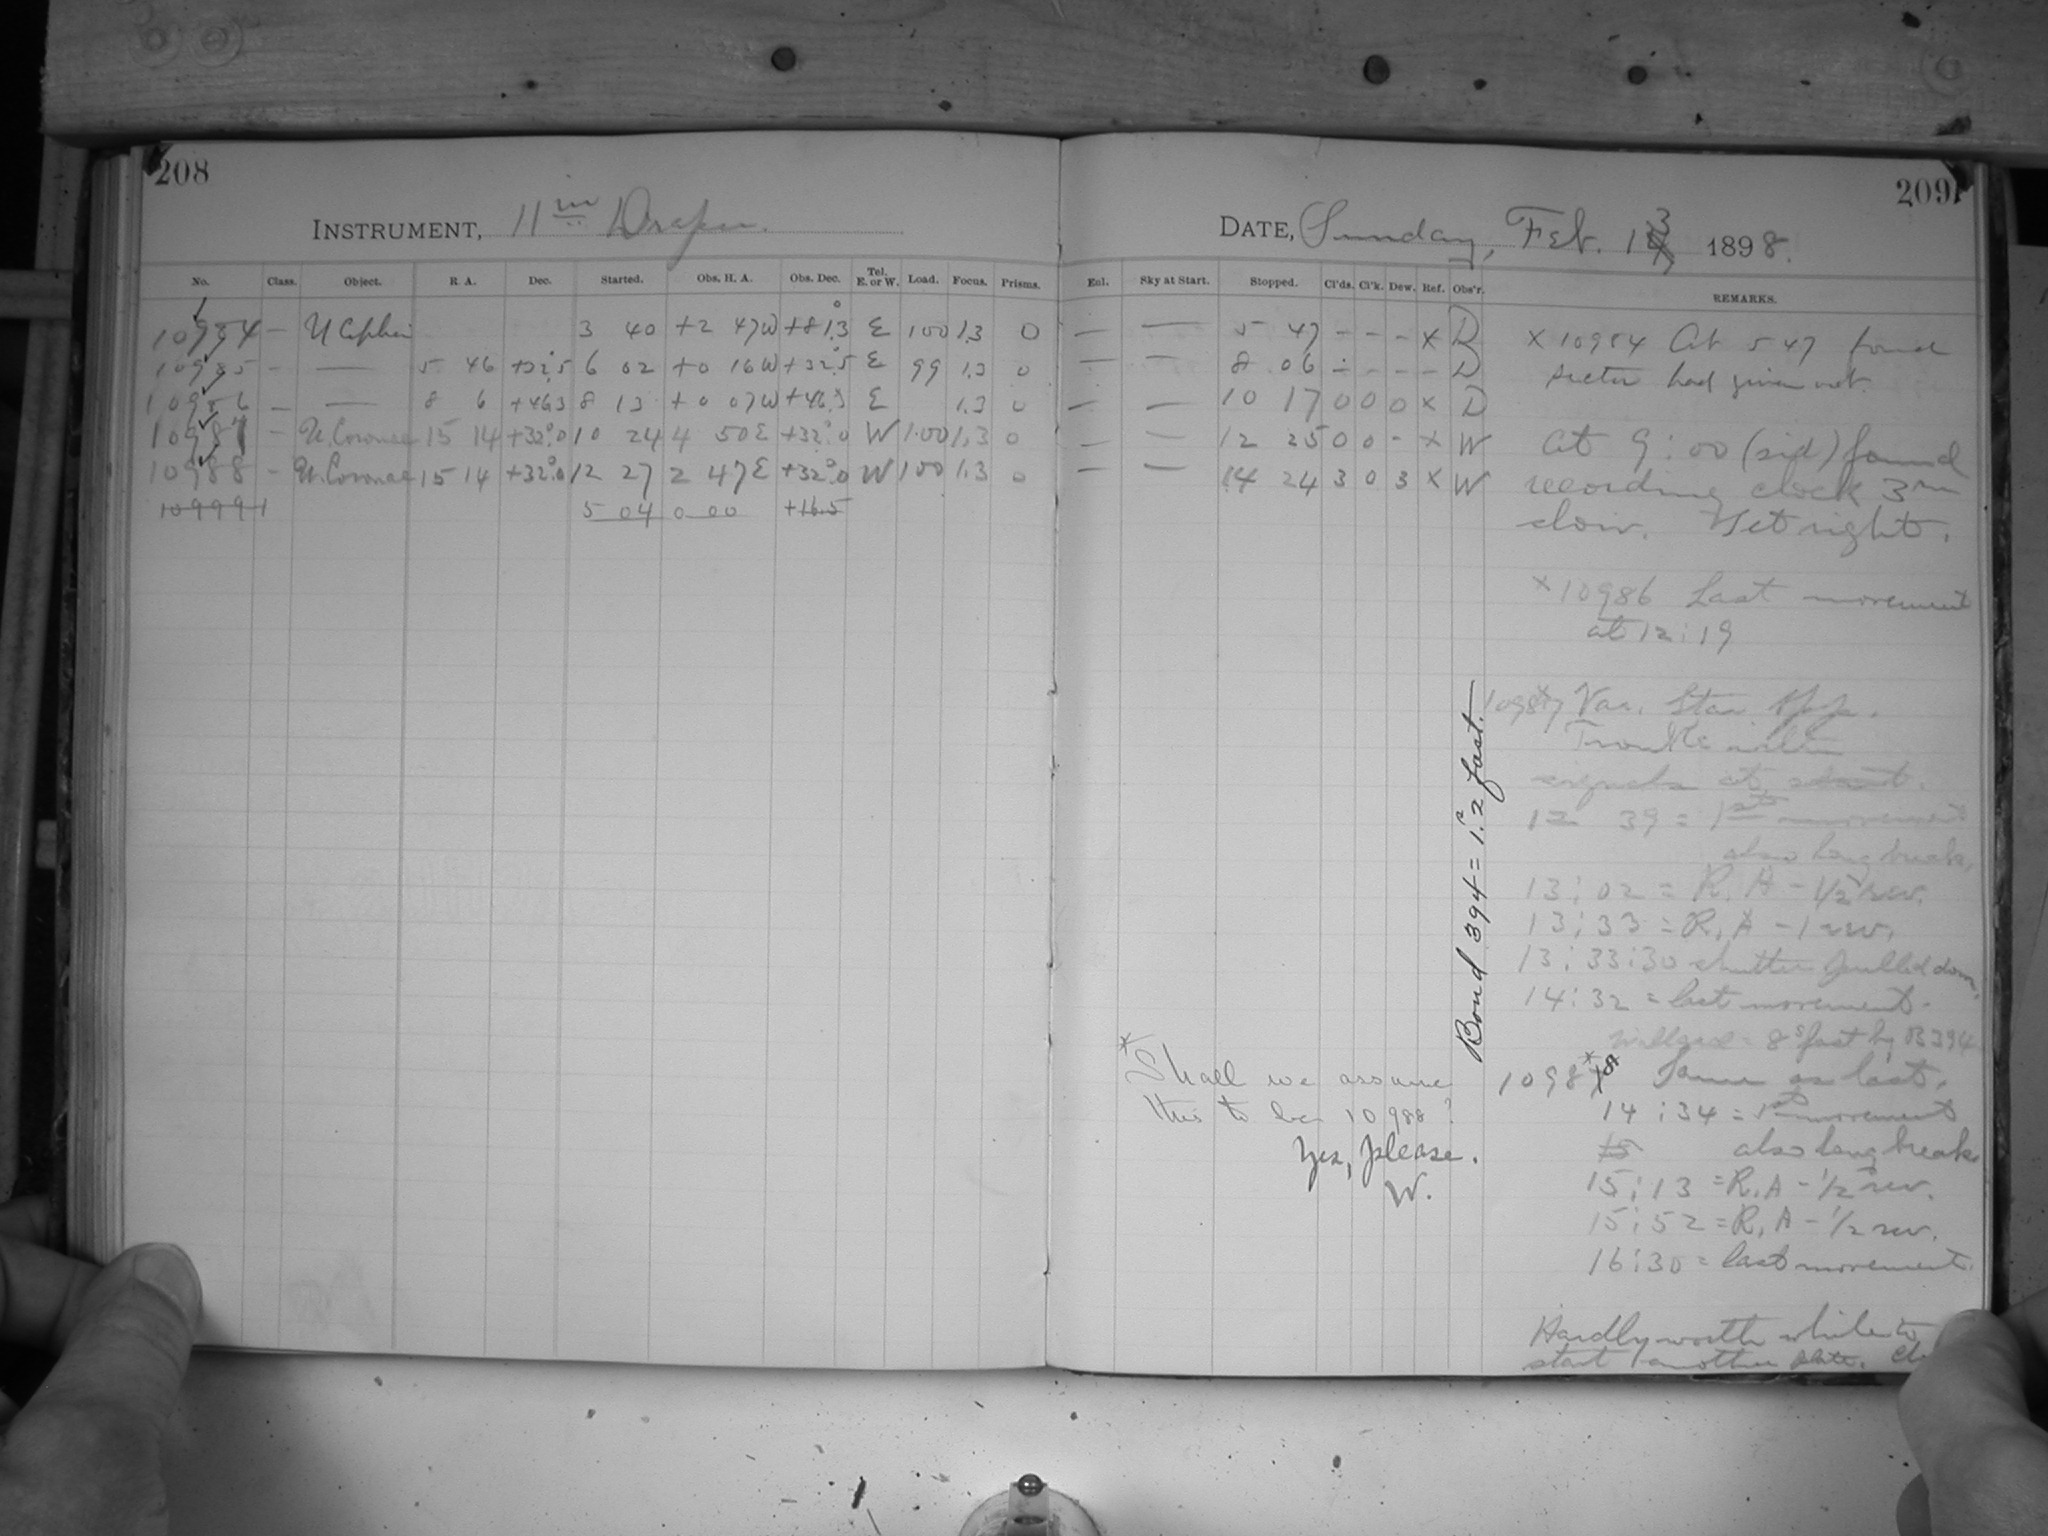 208
INSTRUMENT, 11in Draper.
No. Class. Object. R. A. Dec. Started. Obs. H. A. Obs. Dec. Tel. E. or W. Load. Focus. Prisms.
10984 — U Cephei 3 40 +2 47W +81.3 E 100 1.3 0
10985 — — 5 46 +32.5 6 02 +0 16W +32.5 E 99 1.3 0
10986 — — 8 6 +46.3 8 13 +0 07W +46.3 E 1.3 0
10987 — U. Coronae 15 14 +32°.0 10 24 4 50E +32°.0 W 100 1.3 0
10988 — U. Coronae 15 14 +32°.0 12 27 2 47E +32°.0 W 100 1.3 0
10999 5 04 0 00 +16.5
209
DATE, Sunday, Feb. 13 1898.
Eol. Sky at Start. Stopped. Cl'ds. Cl'k. Dew. Ref. Obs'r. REMARKS.
— — 5 47 - - - x D
— — 8 06 - - - - D
— — 10 17 0 0 0 x D
12 25 0 0 - x W
— — 14 24 3 0 3 x W
x 10984 At 5 47 found
sector had given out.
At 9:00 (sid) found
recording clock 3m
slow. Set right.
x 10986 Last movement
at 12:19
10987 Var. Star App.
Trouble with
at start.
12 39 = 1st movement
also long breaks.
13:02 = R.A - 1/2 rev.
13:33 = R.A - 1 rev.
13:33:30 shutter pulled down.
14:32 = last movement.
Willard = 8s fast by B394
10988 * Same as last.
14:34 = 1st movement
15 also long breaks
15:13 = R.A - 1/2 rev.
15:52 = R.A - 1/2 rev.
16:30 = last movement.
Hardly worth while to
start another plate.
Bond 394 = 1s.2 fast.
* Shall we assume
this to be 10988?
Yes, please.
W.